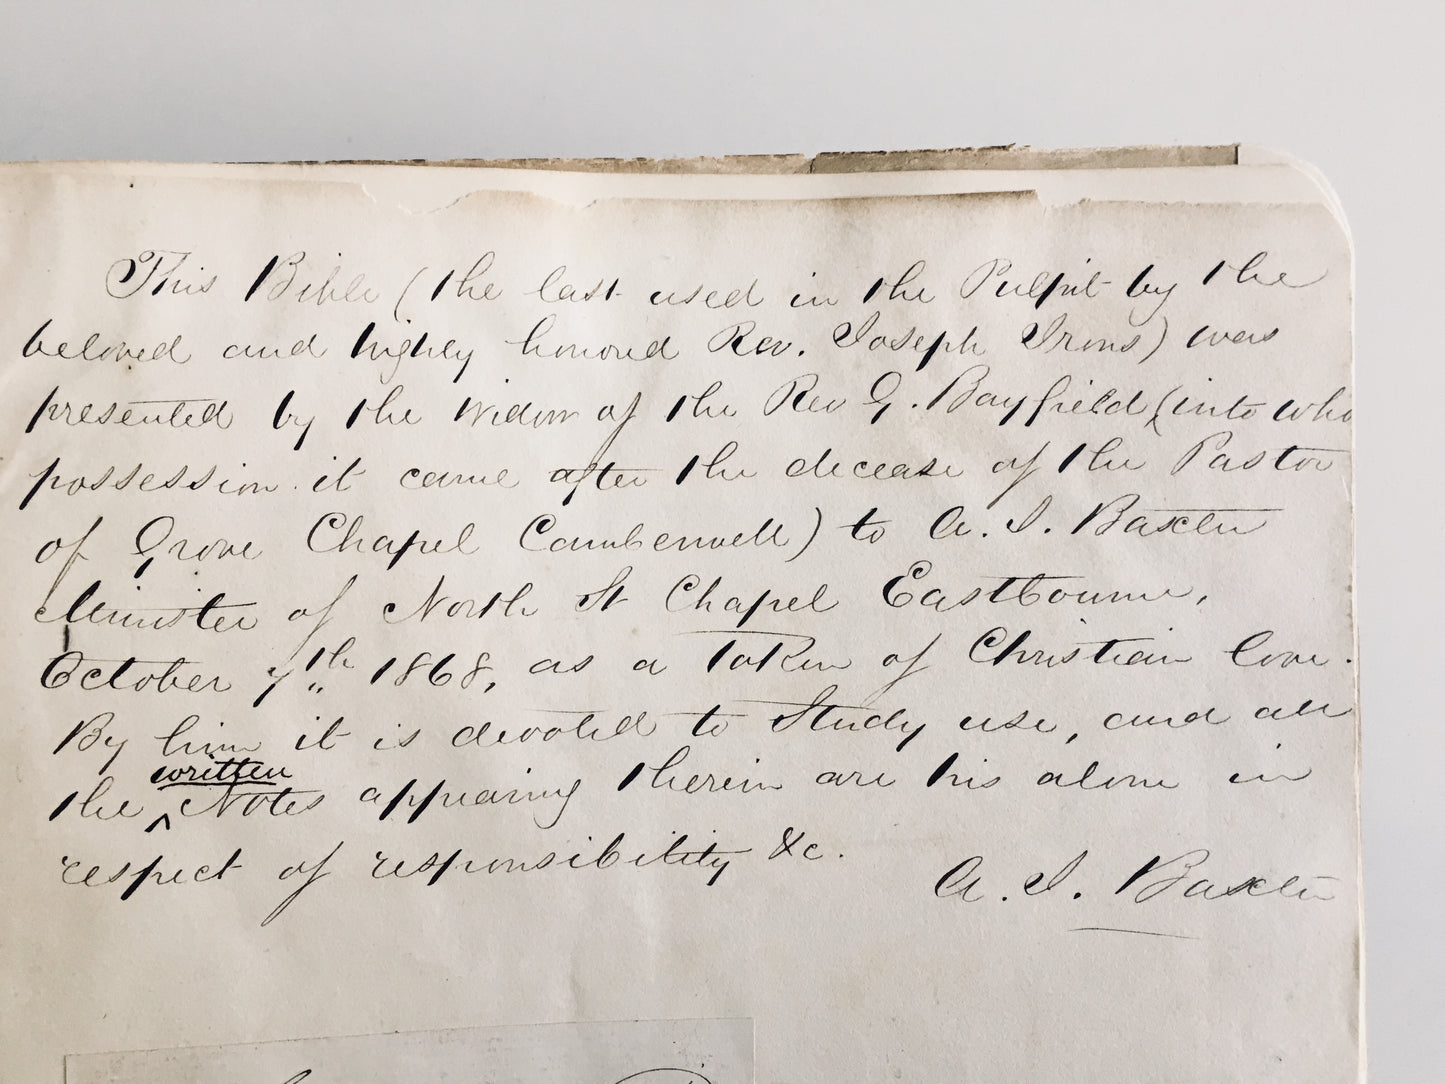 This Bible (the last used in the Pulpit by the
beloved and highly honored Rev. Joseph Irons) was
presented by the widow of the Rev G. Bayfield (into who
possession it came after the decease of the Pastor
of Grove Chapel Camberwell) to A. J. Baxter
Minister of North St Chapel Eastbourne,
October 7th 1868, as a token of Christian love.
By him it is devoted to Study use, and all
written
the ^ Notes appearing therein are his alone in
respect of responsibility &c.
A. J. Baxter